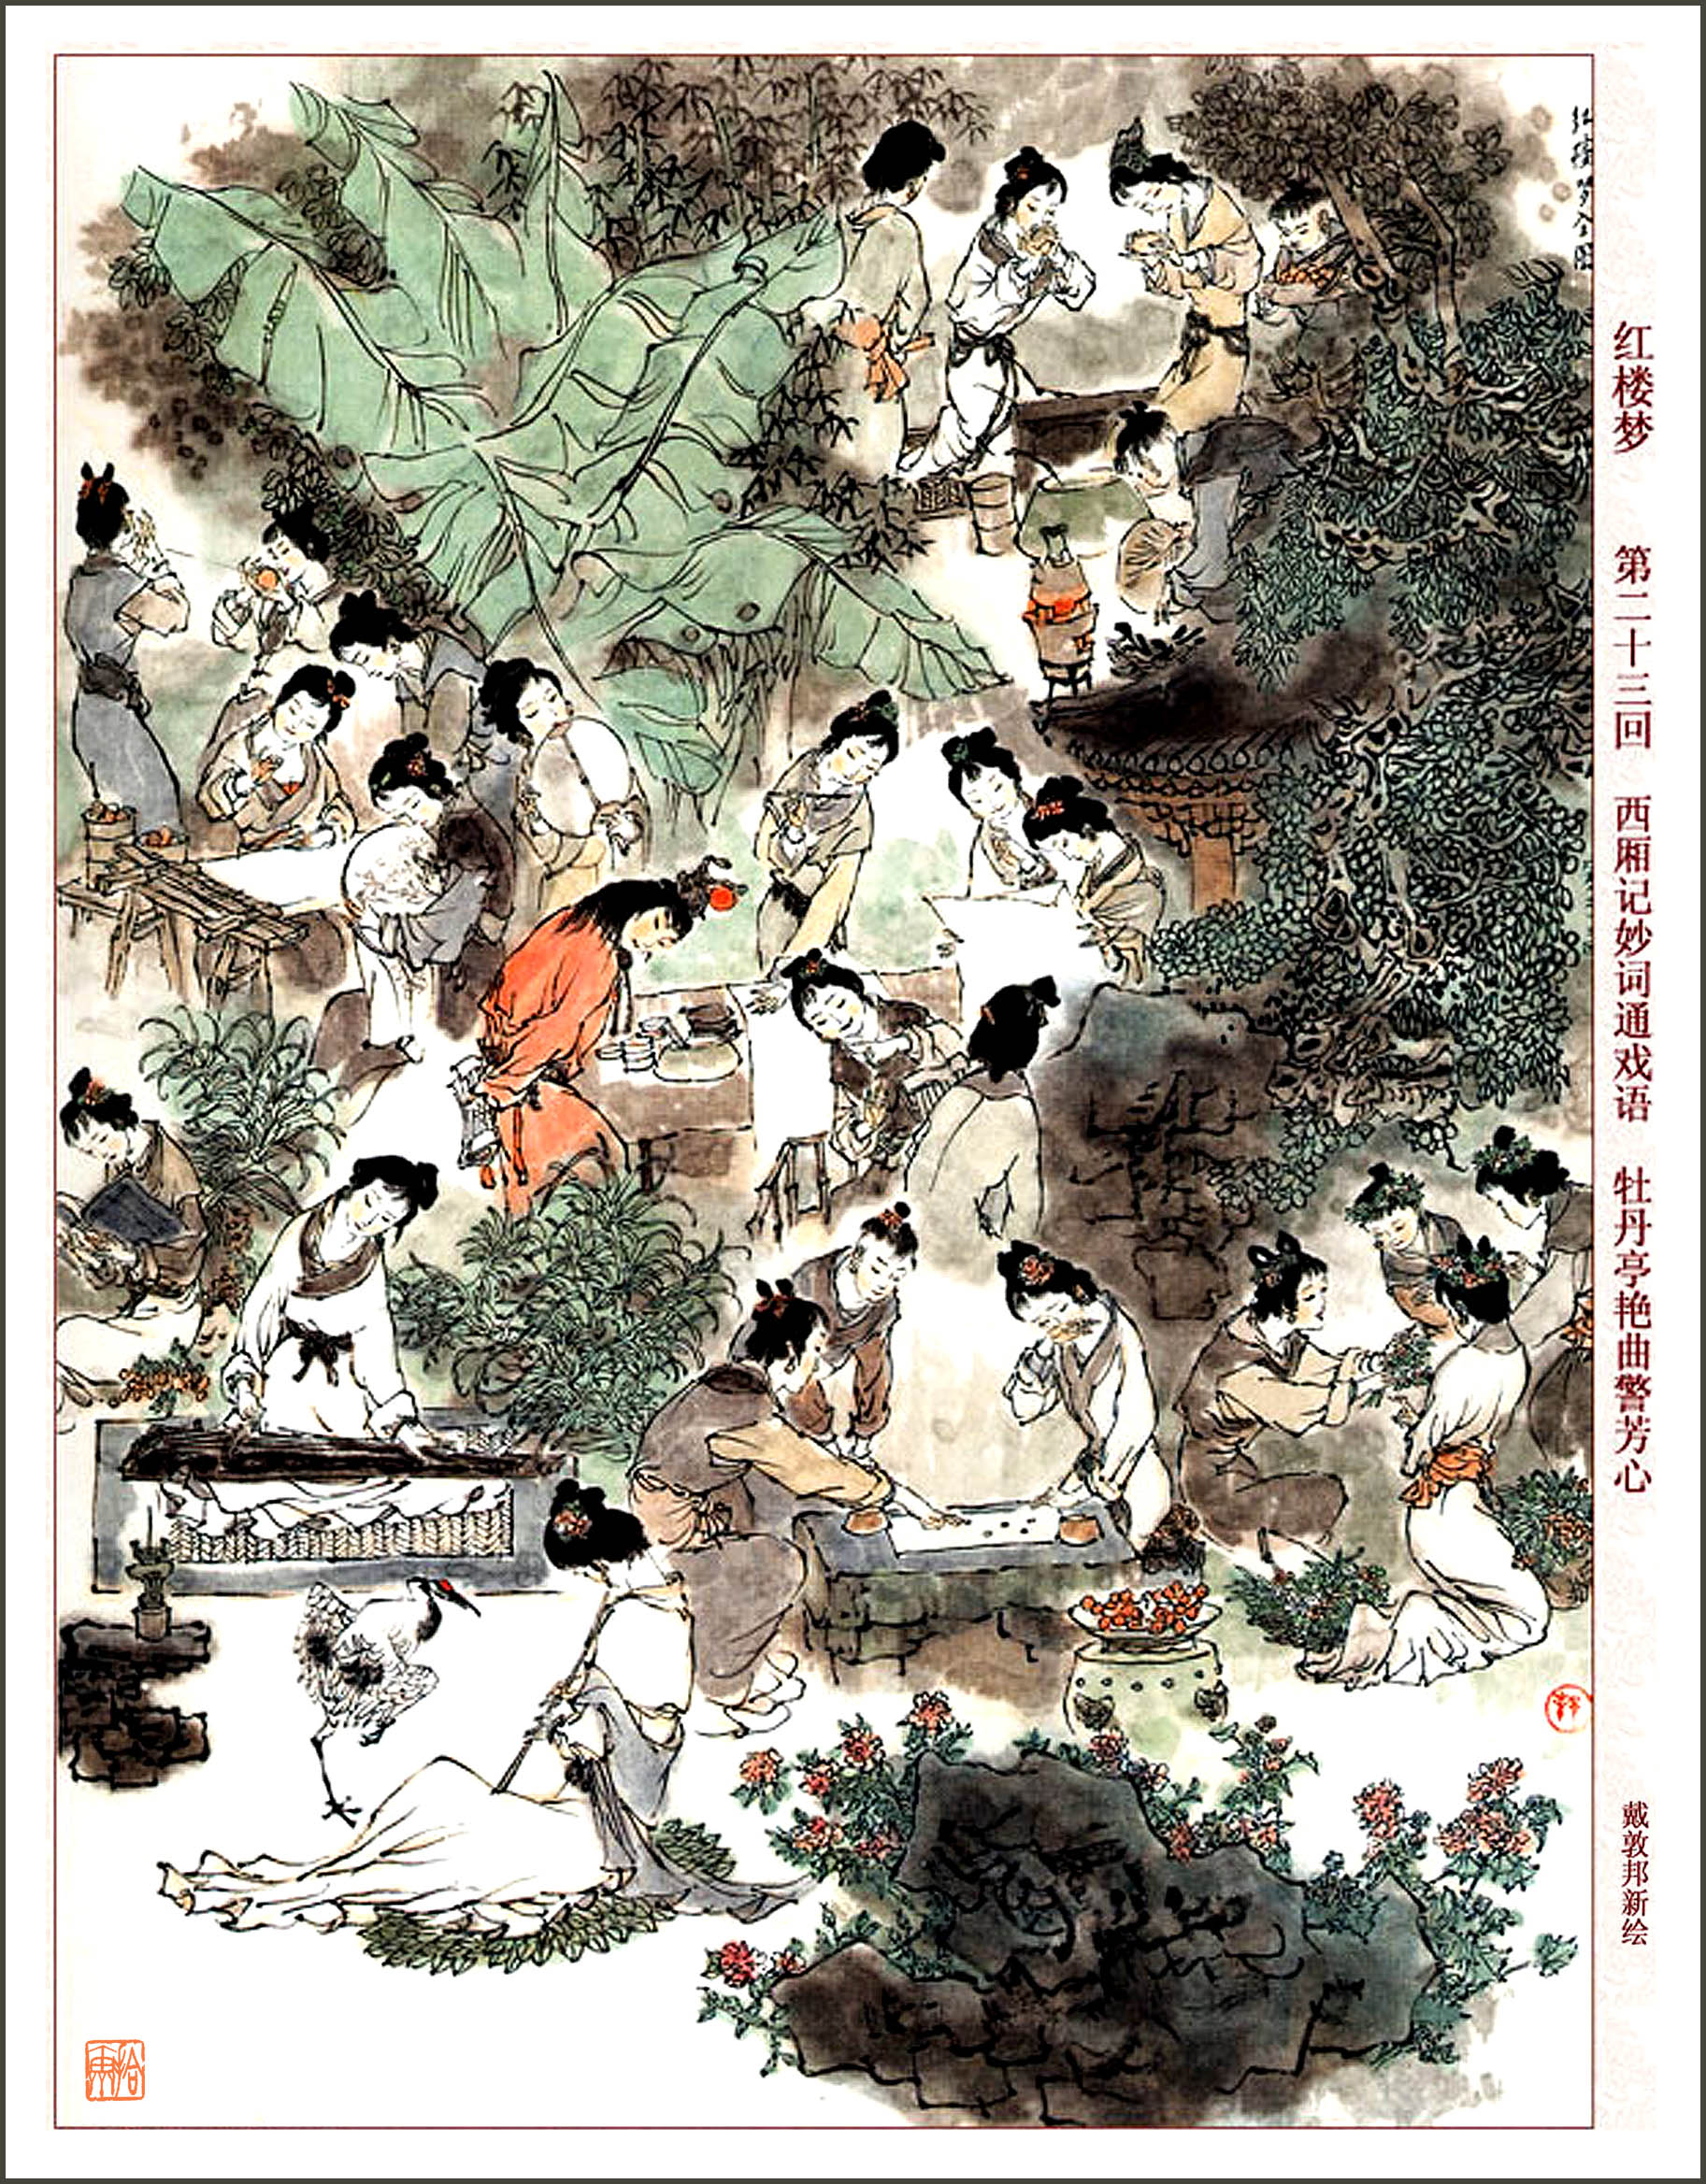 红楼梦 第二十三回 西厢记妙词通戏语 牡丹亭艳曲警芳心
戴敦邦新绘
红楼梦全图